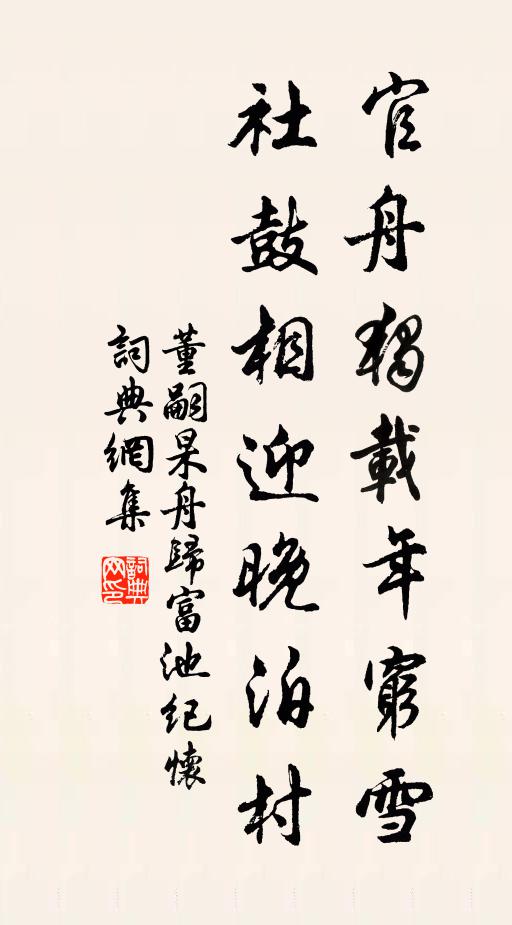 官舟獨載年窮雪
社鼓相迎晚泊村
董嗣杲舟歸富池紀懷
詞典網集
詞典网印